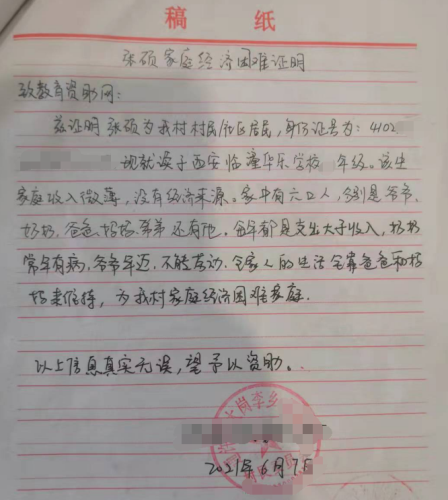 稿 纸
张硕家庭经济困难证明
致教育资助网:
兹证明张硕为我村村民/社区居民,身份证号为:4102
现就读于西安临潼华乐学校 年级。该生
家庭收入微薄,没有经济来源。家中有六口人,分别是爷爷、
奶奶、爸爸、妈妈、弟弟还有他。每年都是支出大于收入,奶奶
常年有病,爷爷年迈,不能劳动,全家人的生活全靠爸爸和妈
妈来维持,为我村家庭经济困难家庭.
以上信息真实无误,望予以资助。
岗李乡
2021年6月7日